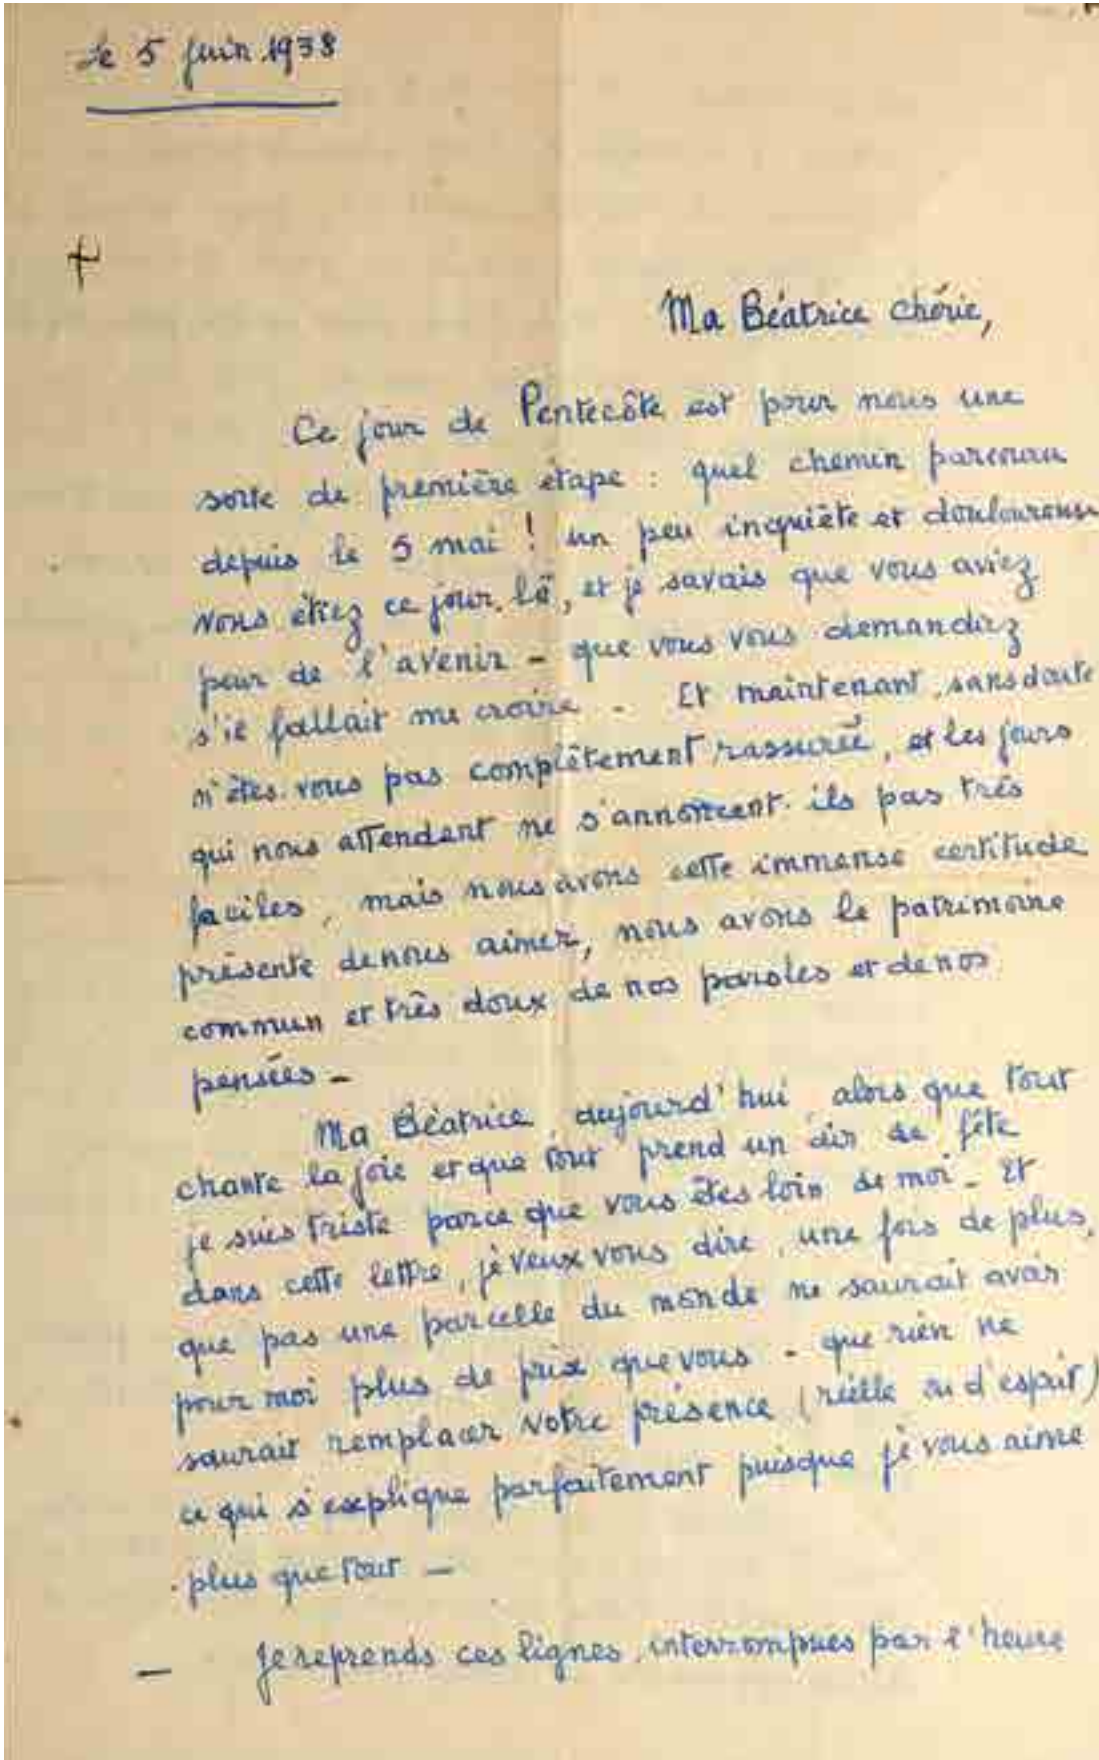 le 5 juin 1938
+
Ma Béatrice chérie,
Ce jour de Pentecôte est pour nous une
sorte de première étape : quel chemin parcouru
depuis le 5 mai ! un peu inquiète et douloureuse
vous étiez ce jour-là, et je savais que vous aviez
peur de l'avenir - que vous vous demandiez
s'il fallait me croire - Et maintenant, sans doute
n'êtes-vous pas complètement rassurée, et les jours
qui nous attendent ne s'annoncent-ils pas très
faciles, mais nous avons cette immense certitude
présente de nous aimer, nous avons le patrimoine
commun et très doux de nos paroles et de nos
pensées -
Ma Béatrice, aujourd'hui, alors que tout
chante la joie et que tout prend un air de fête
je suis triste parce que vous êtes loin de moi - Et
dans cette lettre, je veux vous dire, une fois de plus,
que pas une parcelle du monde ne saurait avoir
pour moi plus de prix que vous - que rien ne
saurait remplacer votre présence (réelle ou d'esprit)
ce qui s'explique parfaitement puisque je vous aime
plus que tout -
- Je reprends ces lignes, interrompues par l'heure